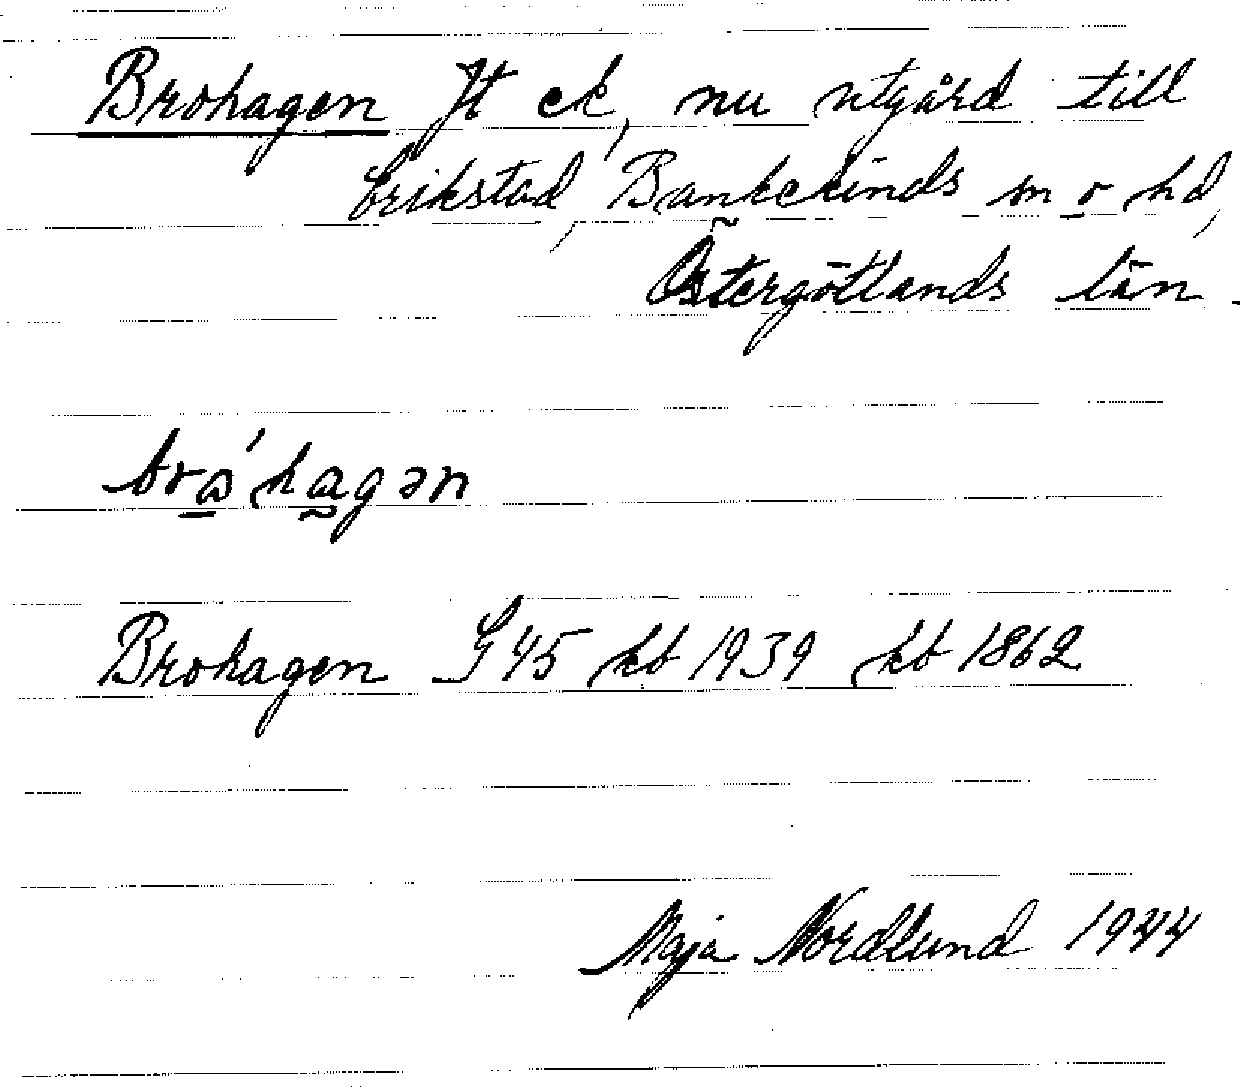 Brohagen Jt ek, nu utgård till
Erikstad, Bankekinds sn o hd,
Östergötlands län.
bro'hagən
Brohagen G 45 kb 1939 hb 1862
Maja Nordlund 1944